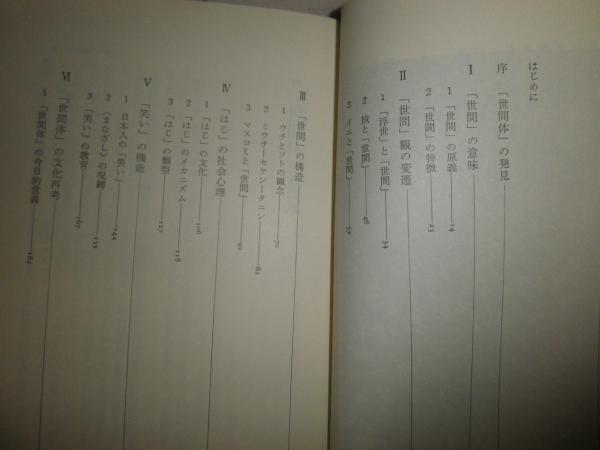 はじめに
序 「世間体」の発見
Ⅰ 「世間」の意味
1 「世間」の原義 14
2 「世間」の特徴 23
Ⅱ 「世間」観の変遷
1 「浮世」と「世間」 34
2 旅と「世間」 46
3 イエと「世間」
Ⅲ 「世間」の構造
1 ウチとソトの観念 70
2 ミウチ―セケン―タニン 82
3 マスコミと「世間」 92
Ⅳ 「はじ」の社会心理
1 「はじ」の文化 106
2 「はじ」のメカニズム 118
3 「はじ」の類型 127
Ⅴ 「笑い」の機能
1 日本人の「笑い」 144
2 〈まなざし〉の呪縛 155
3 「笑い」の教育 167
Ⅵ 「世間体」の文化再考
1 「世間体」の今日的意義 182